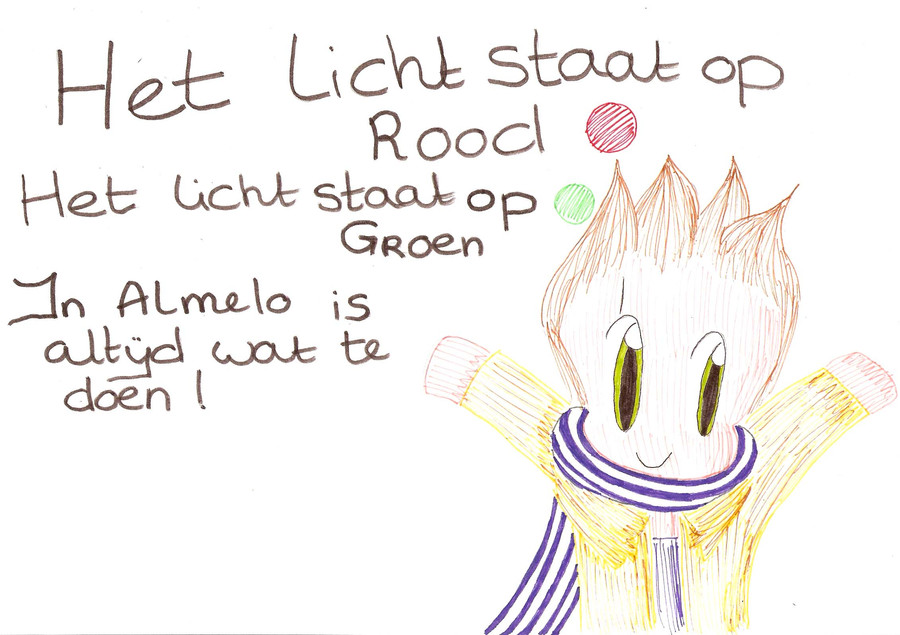 Het licht staat op
Rood
Het licht staat op
Groen
In Almelo is
altijd wat te
doen!